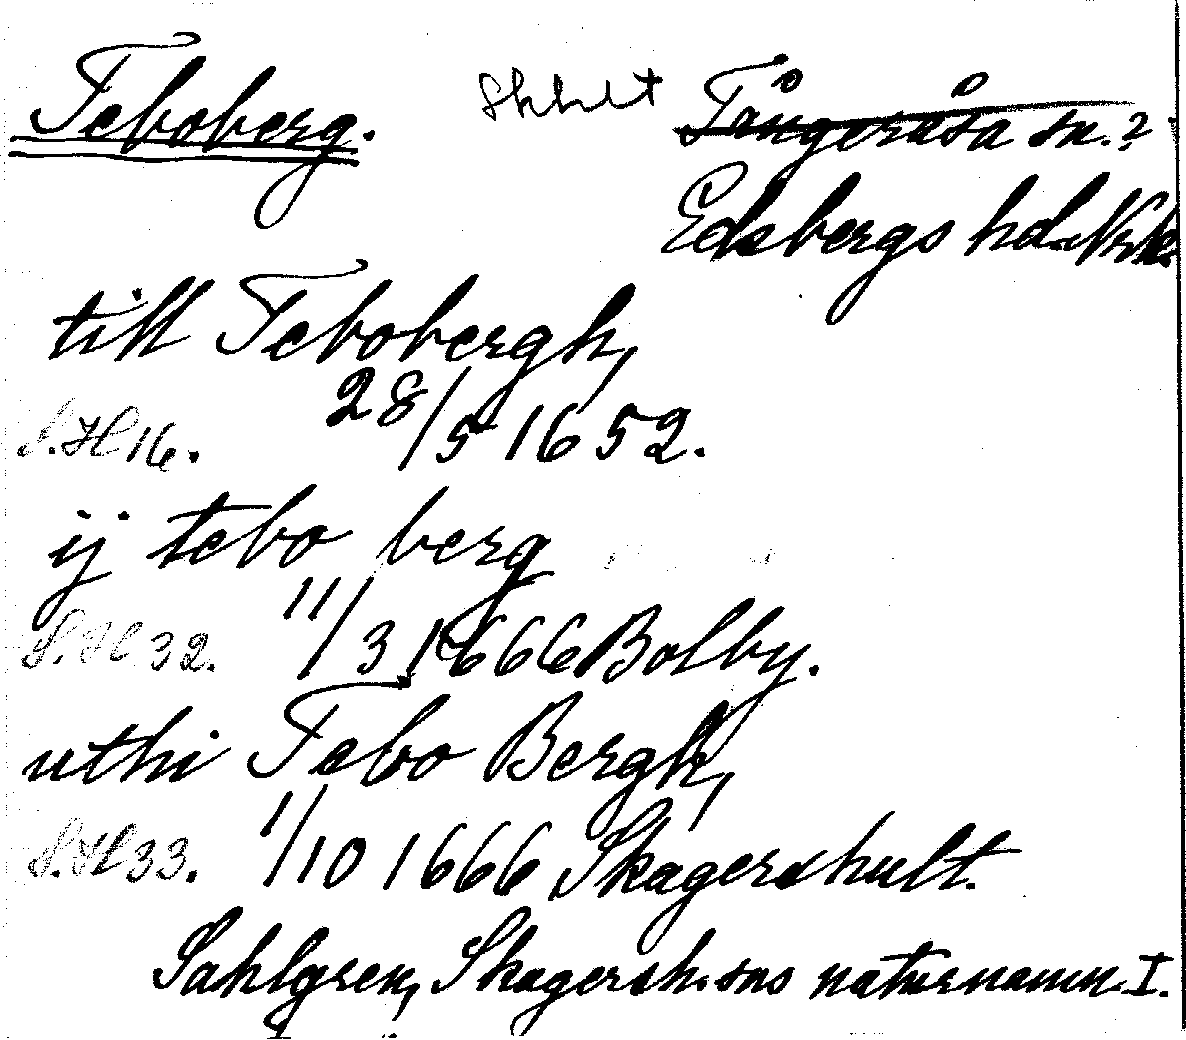 Teboberg. Skhlt Tångeråsa sn.?
Edsbergs hd. Nrk.
till Tebobergh,
S.H 16. 28/5 1652.
ij tebo berg
S.H 32. 11/3 1666 Bolby.
uthi Tebo Bergh,
S.H 33. 1/10 1666 Skagershult.
Sahlgren, Skagersh. sns naturnamn I.